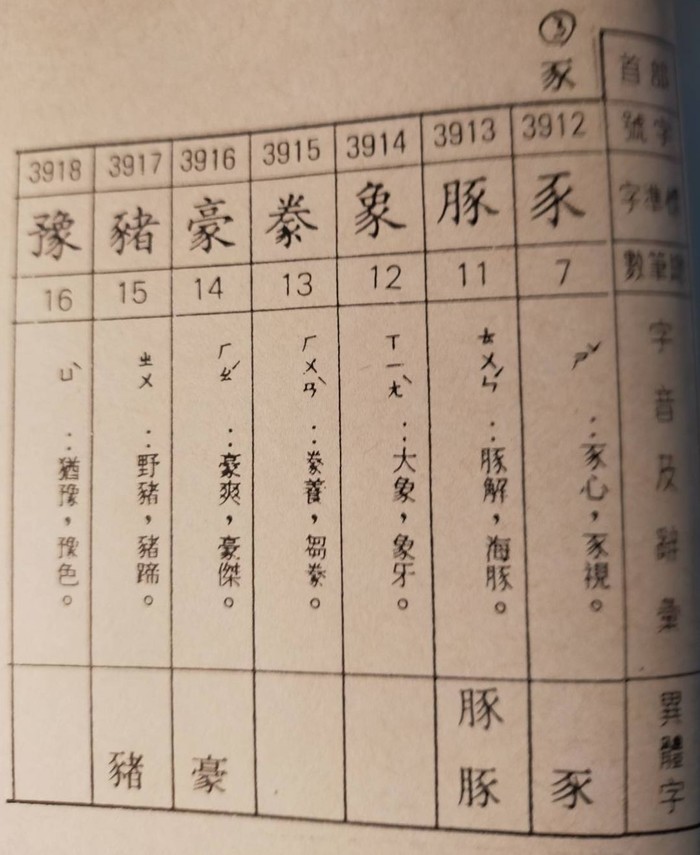 ③
豕
部首
字號
標準字
總筆數
字音及辭彙
異體字
3912
豕
7
ㄕˇ
：豕心，豕視。
豕
3913
豚
11
ㄊㄨㄣˊ
：豚解，海豚。
豚
豚
3914
象
12
ㄒㄧㄤˋ
：大象，象牙。
3915
豢
13
ㄏㄨㄢˋ
：豢養，芻豢。
3916
豪
14
ㄏㄠˊ
：豪爽，豪傑。
豪
3917
豬
15
ㄓㄨ
：野豬，豬蹄。
豬
3918
豫
16
ㄩˋ
：猶豫，豫色。